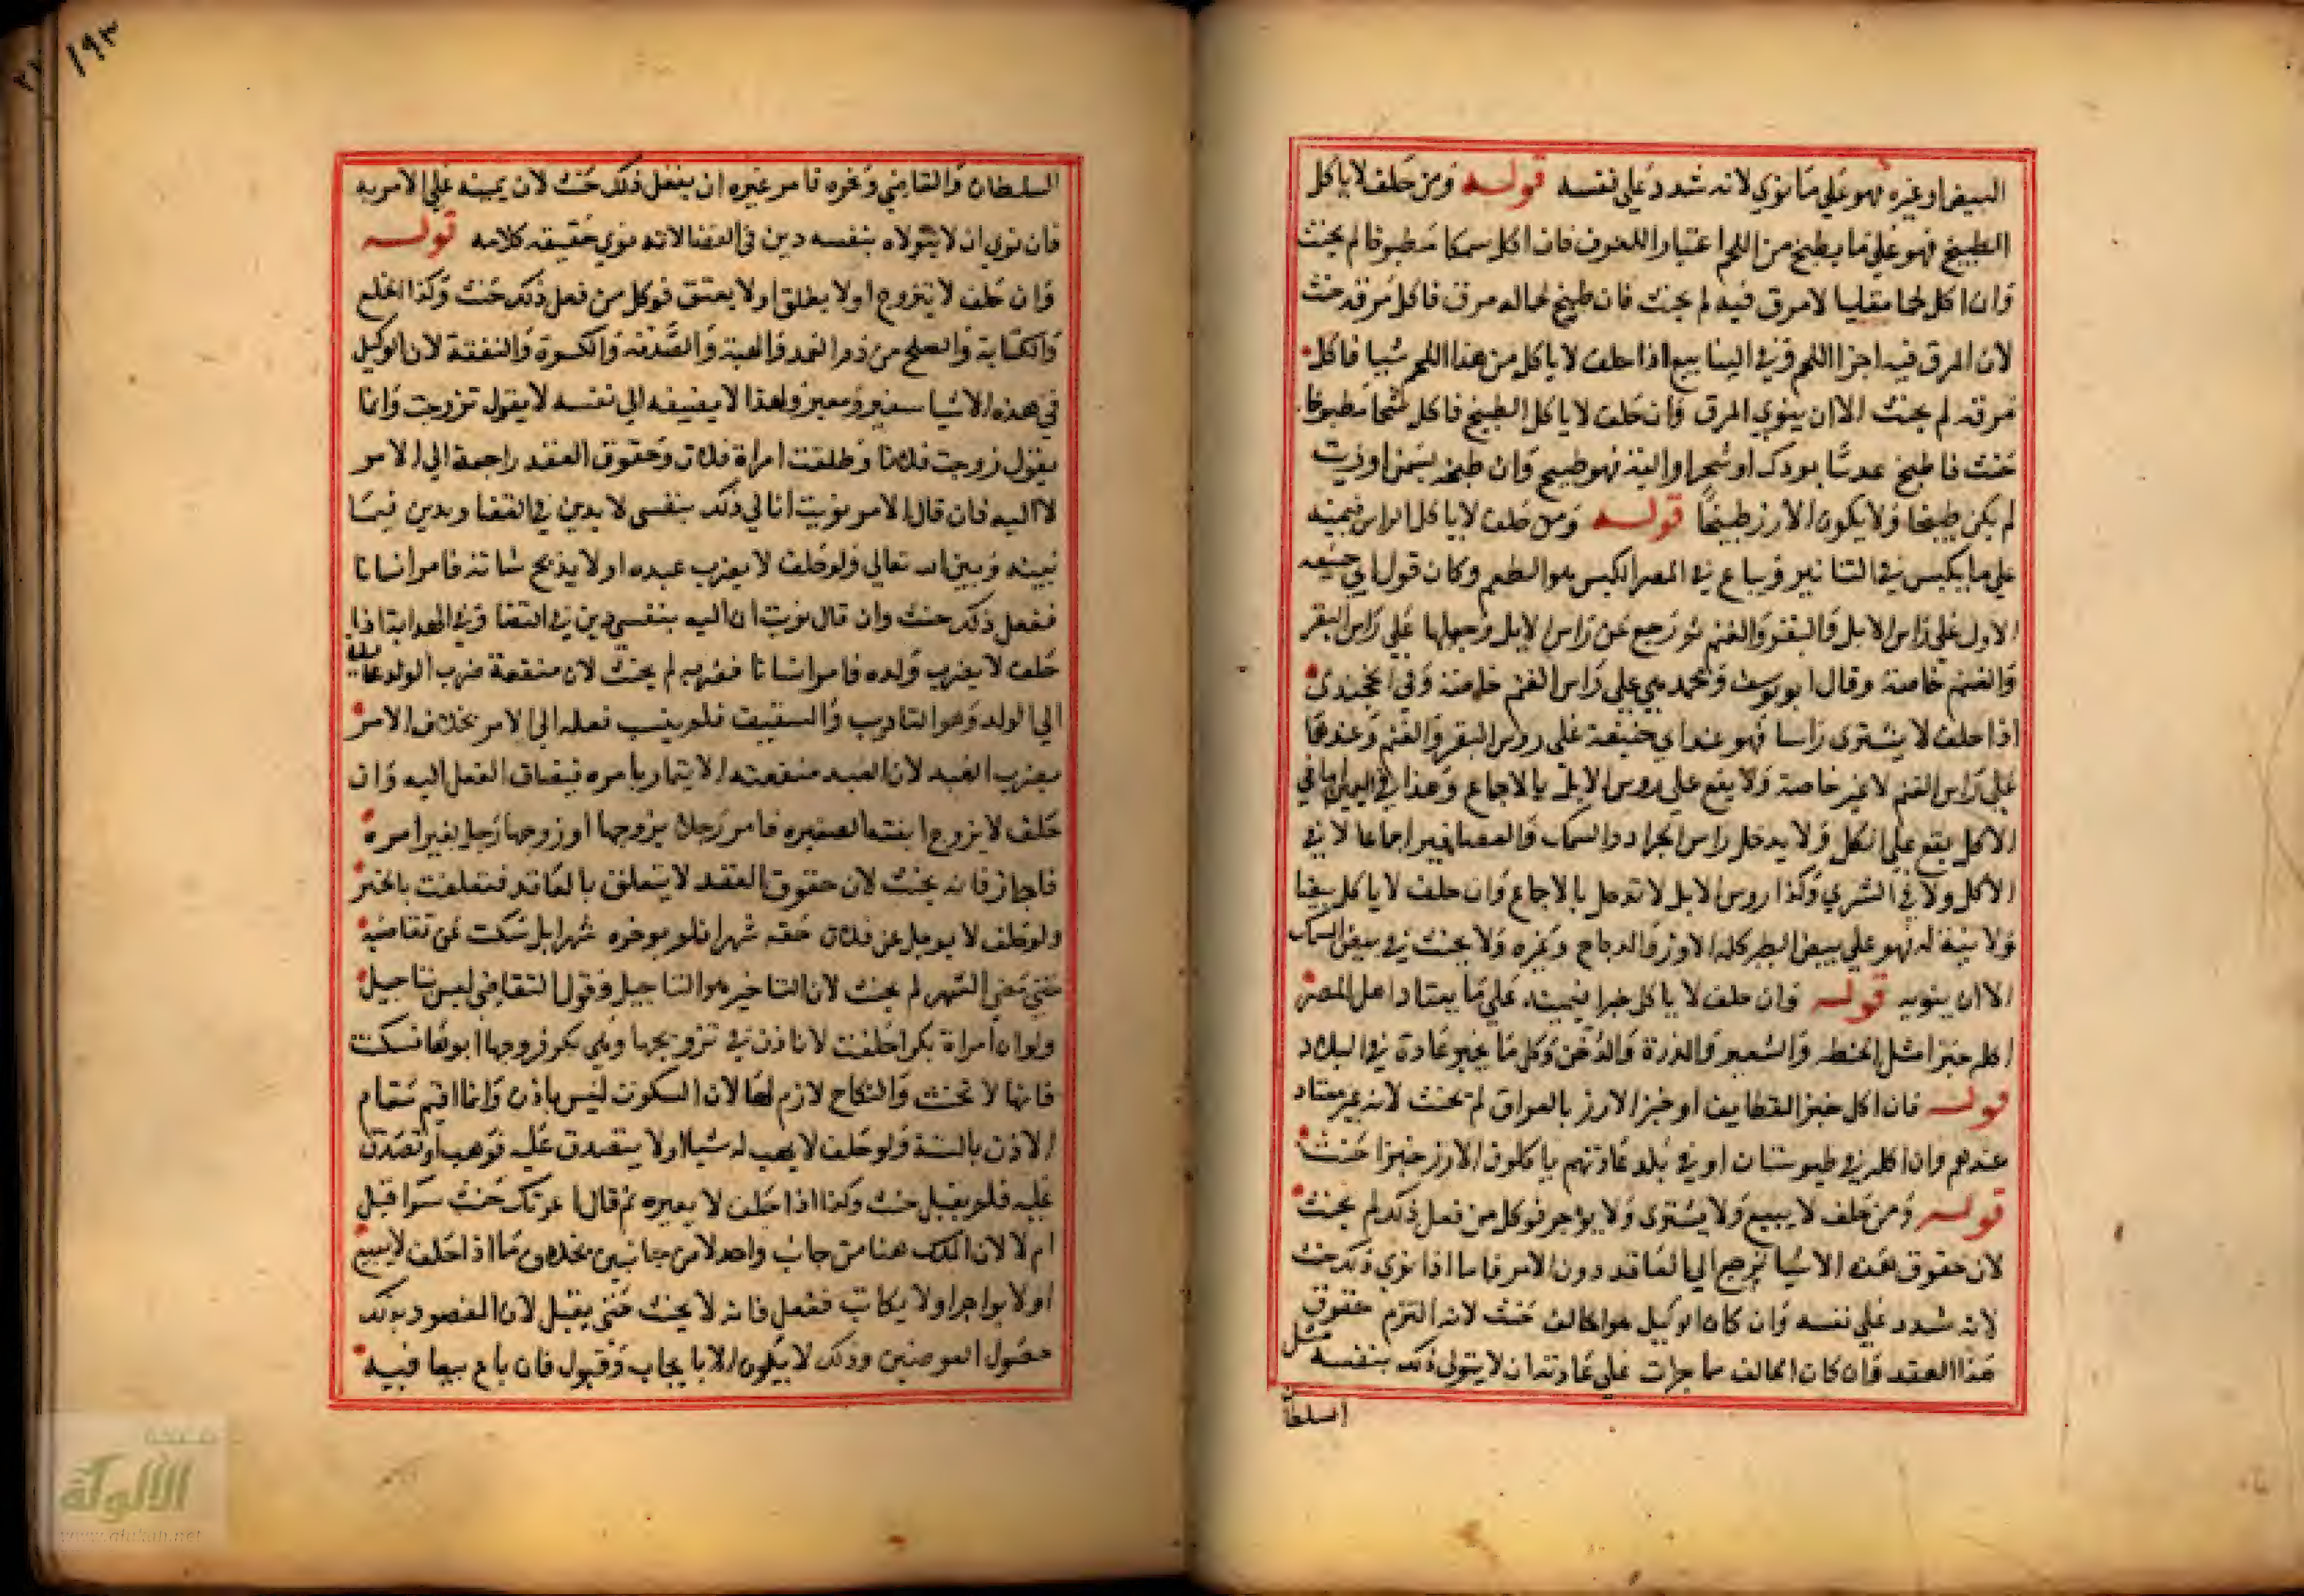 البيض او غيره فهو علي ما نوي لانه شدد علي نفسه قولـه ومن حلف لا ياكل
الطبيخ فهو علي ما يطبخ من اللحم اعتبارا للعرف فان اكل سمكا مطبوخا لم يحنث
وان اكل لحما مقليا لا مرق فيه لم يحنث فان طبخ لحما له مرق فاكل مرقه حنث
لان المرق فيه اجزا اللحم وفي الينابيع اذا حلف لا ياكل من هذا اللحم شيا فاكل
مرقه لم يحنث الا ان ينوي المرق وان حلف لا ياكل الطبيخ فاكل شحما مطبوخا
حنث فاطبخ عدسا بودك او شحم او الية فهو طبيخ وان طبخه بسمن او زيت
لم يكن طبيخا ولا يكون الارز طبيخا قولـه ومن حلف لا ياكل الراس فيمينه
علي ما يكبس في التنانير ويباع في المصر الكبس هو الطم وكان قول ابي حنيفه
الاول علي راس الابل والبقر والغنم ثم رجع عن راس الابل وجعلها علي راس البقر
والغنم خاصة وقال ابو يوسف ومحمد هي علي راس الغنم خاصة وفي الخجندي
اذا حلف لا يشتري راسا فهو عند ابي حنيفة علي روس البقر والغنم وعندهما
علي راس الغنم لا غير خاصة ولا يقع علي روس الابل بالاجماع وهذا في اليمين اما في
الاكل يقع علي الكل ولا يدخل راس الجراد والسمك والعصافير اجماعا لا في
الاكل ولا في الشري وكذا روس الابل لا تدخل بالاجماع وان حلف لا ياكل بيضا
ولا نية له فهو علي بيض الطير كله الاوز والدجاج وغيره ولا يحنث في بيض السمك
الا ان ينويه قولـه وان حلف لا ياكل خبزا فيمينه علي ما يعتاد اهل المصر
اكله خبزا مثل الحنطه والشعير والذرة والدخن وكل ما يخبز عادة في البلاد
قولـه فان اكل خبز القطايف او خبز الارز بالعراق لم يحنث لانه غير معتاد
عندهم وان اكله في طبرستان او في بلد عادتهم ياكلون الارز خبزا حنث
قولـه ومن حلف لا يبيع ولا يشتري ولا يؤجر فوكل من فعل ذلك لم يحنث
لان حقوق هذه الاشيا ترجع الي العاقد دون الامر فاما اذا نوي ذلك حنث
لانه شدد علي نفسه وان كان الوكيل هو الحالف حنث لانه التزم حقوق
هذا العقد فان كان الحالف مما جرت علي عادته ان لا يتولي ذلك بنفسه مثل
السلطان
السلطان والقاضي ونحوه فامر غيره ان يفعل ذلك حنث لان يمينه علي الامر به
فان نوي ان لا يتولاه بنفسه دين في القضا لانه نوي حقيقه كلامه قولـه
وان حلف لا يتزوج او لا يطلق او لا يعتق فوكل من فعل ذلك حنث وكذا الخلع
والكتابة والصلح من دم العمد والهبة والصدقه والكسوة والنفقة لان الوكيل
في هذه الاشيا سفير ومعبر ولهذا لا يضيفه الي نفسه لا يقول تزوجت وانما
يقول زوجت فلانا وطلقت امراة فلان وحقوق العقد راجعة الي الامر
لا اليه فان قال الامر نويت انا لي ذلك بنفسي لا يدين في القضا ويدين فيما
بينه وبين الله تعالي ولو حلف لا يضرب عبده او لا يذبح شاته فامر انسانا
ففعل ذلك حنث وان قال نويت ان اليه بنفسي دين في القضا وفي الهداية اذا
حلف لا يضرب ولده فامر انسانا فضربه لم يحنث لان منفعة ضرب الولد عايدة
الي الولد وهو التاديب والتثقيف فلم ينسب فعله الي الامر بخلاف الامر
بضرب العبد لان العبد منفعته الايتمار بامره فيضاف الفعل اليه وان
حلف لا يزوج ابنته الصغيره فامر رجلا يزوجها او زوجها رجل بغير امره
فاجاز فانه يحنث لان حقوق العقد لا يتعلق بالعاقد فتعلقت بالمجيز
ولو حلف لا يوجل عن فلان حقه شهرا فلم يوخره شهرا بل سكت عن تقاضيه
حتي مضي الشهر لم يحنث لان التاخير هو التاجيل وقول التقاضي ليس بتاجيل
ولو ان امراة بكرا حلفت لا تاذن في تزويجها وهي بكر فزوجها ابوها فسكتت
فانها لا تحنث والنكاح لازم لها لان السكوت ليس باذن وانما اقيم مقام
الاذن بالسنة ولو حلف لا يهب له شيا او لا يتصدق عليه فوهب او تصدق
عليه فلم يقبل حنث وكذا اذا حلف لا يعيره ثم قال اعرتك حنث سوا قبل
ام لا لان الملك هنا من جانب واحد لا من جانبين بخلاف ما اذا حلف لا يبيع
او لا يواجر او لا يكاتب ففعل فانه لا يحنث حتي يقبل لان المقصود بذلك
حصول العوضين وذلك لا يكون الا بايجاب وقبول فان باع بيعا فيه
١٩٣
الألوكة
www.alukah.net